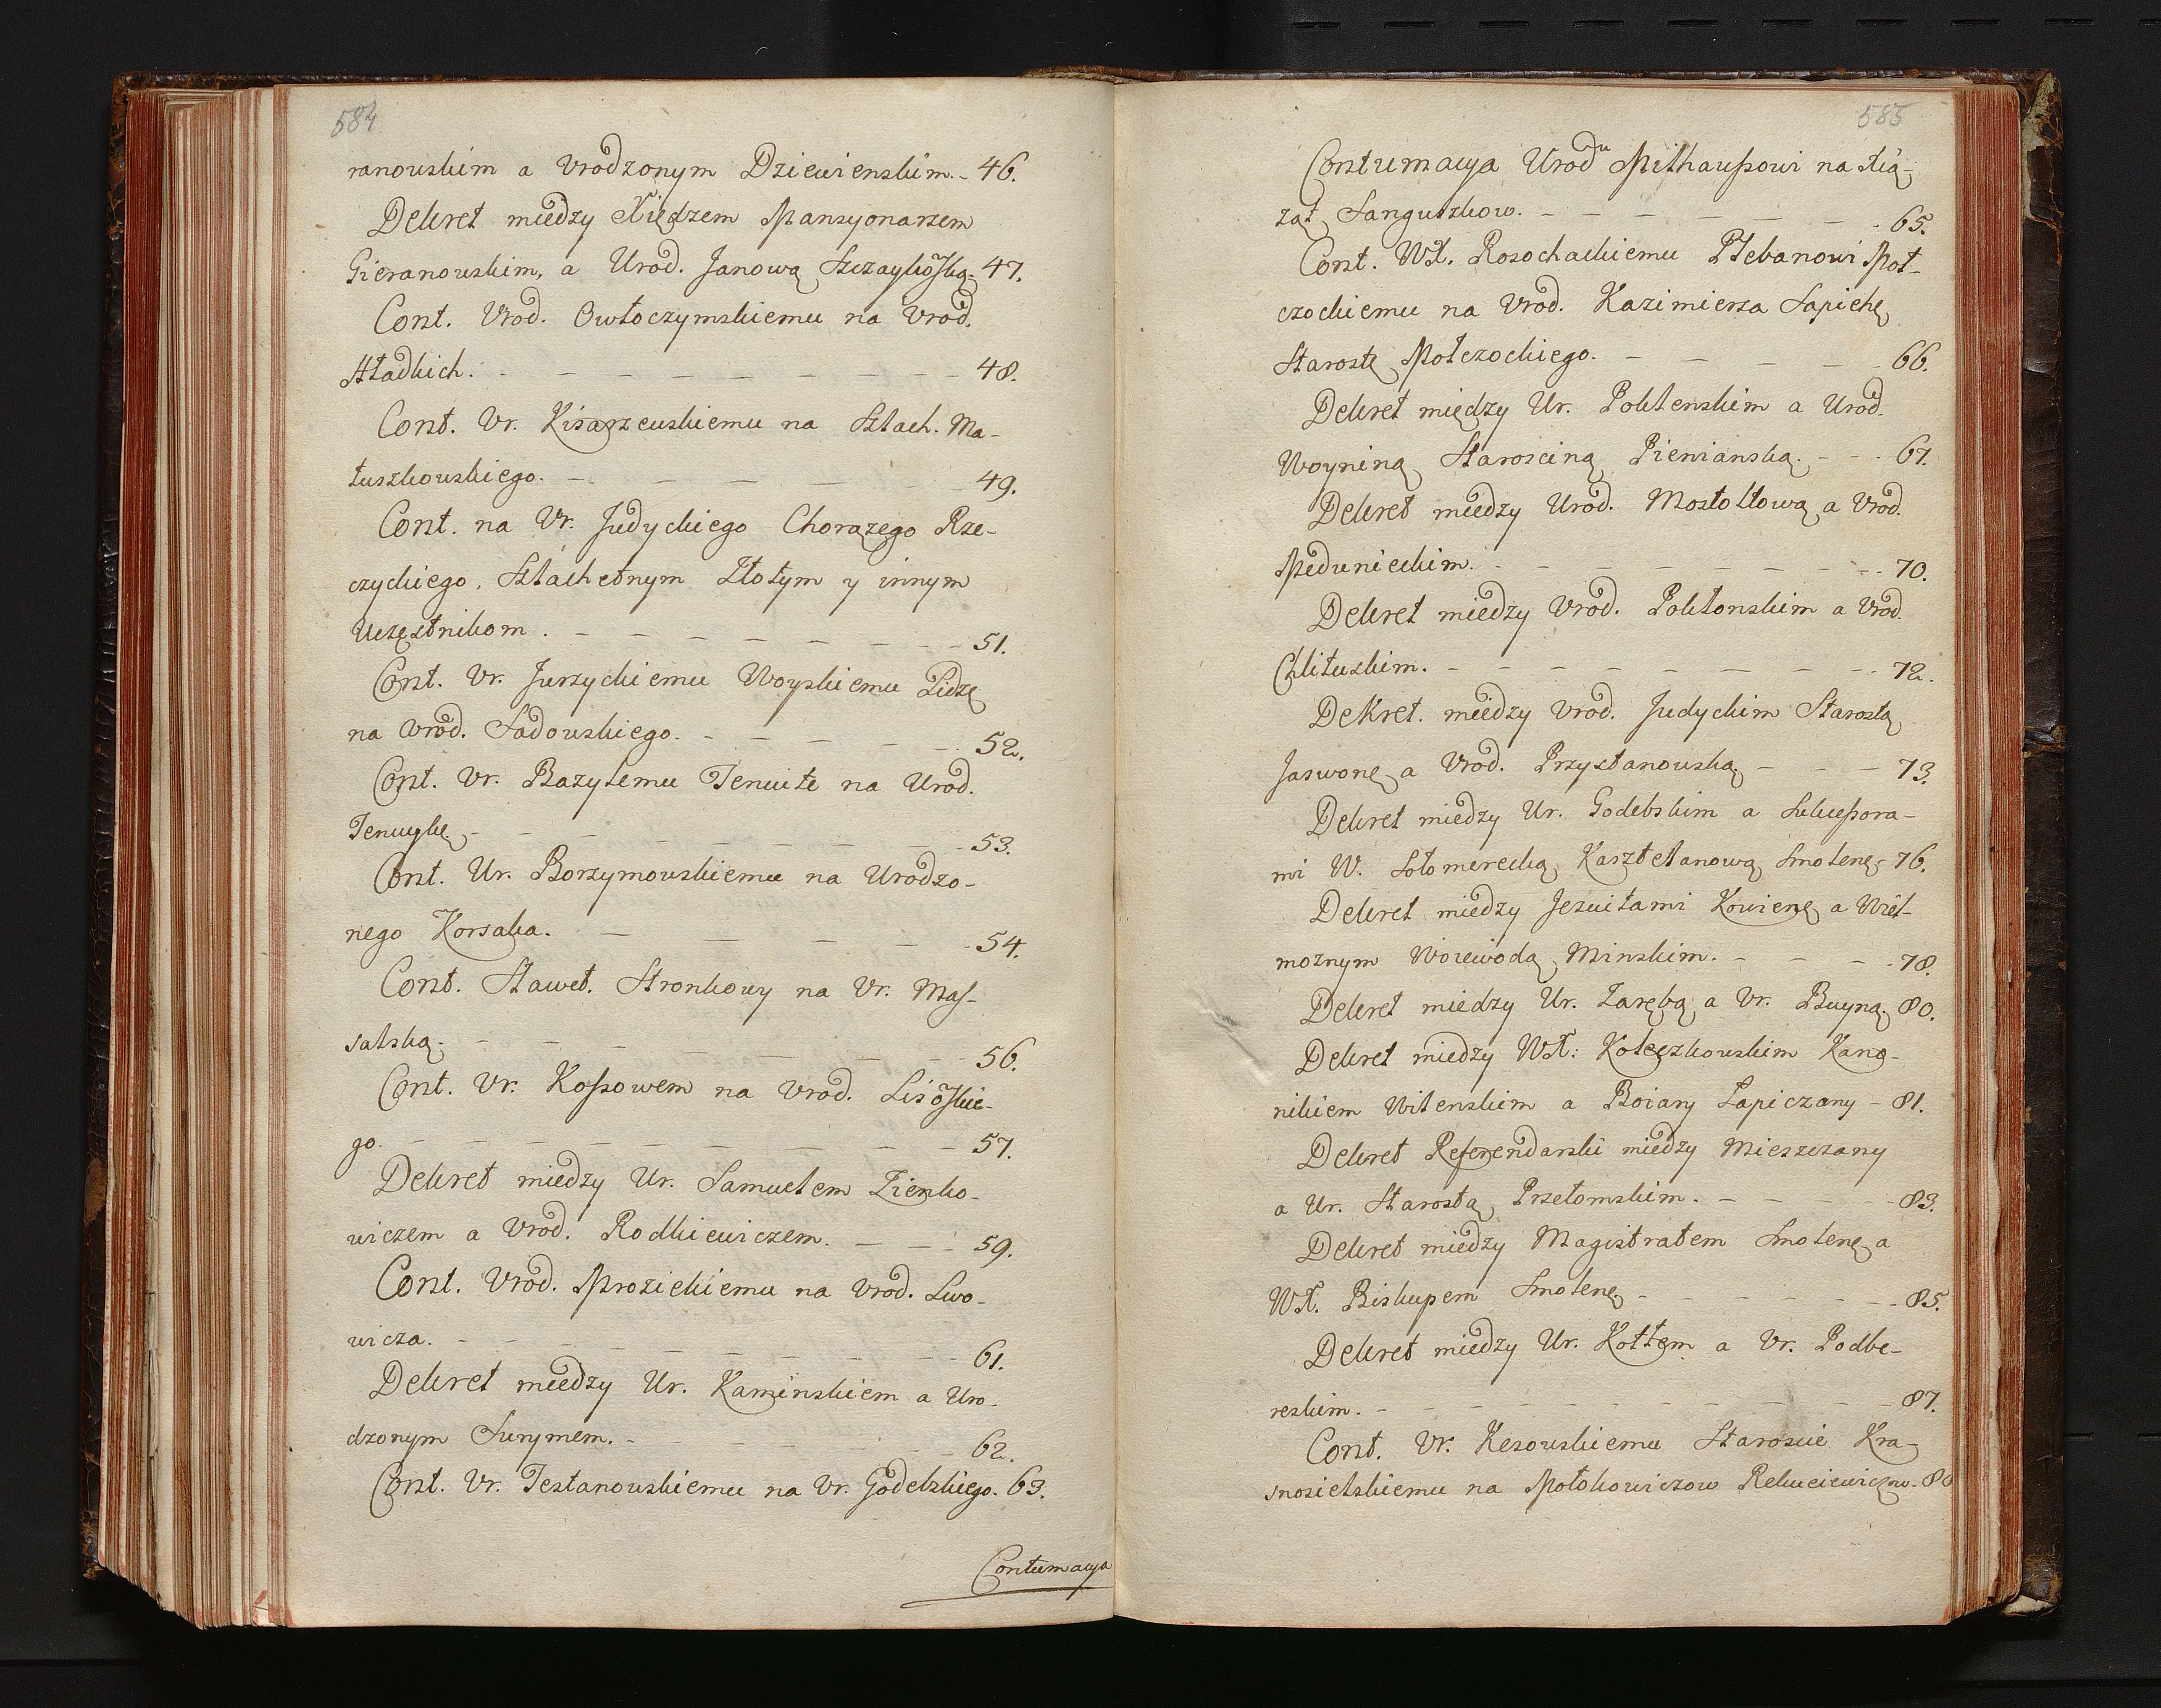 584
ranowskim a Vrodzonym Dziewienskim. - 46.
Dekret miedzy Xiędzem Mansyonarzem
Gieranowskim, a Urod. Janową Szczaykoską. 47.
Cont. Vrod. Owłoczymskiemu na Vrod.
Stadkich. - - - - - - - - - 48.
Cont. Vr. Kisarzewskiemu na Szlach. Ma-
tuszkowskiego. - - - - - - 49.
Cont. na Vr. Judyckiego Chorązego Rze-
czyckiego, Szlachetnym Złotym y innym
Uczęstnikom. - - - - - - - - 51.
Cont. Vr. Jurzyckiemu Woyskiemu Lidzę
na Vrod. Sadowskiego. - - - - - - 52.
Cont. Vr. Bazylemu Jenuite na Urod.
- - - - - - - - 53.
Cont. Ur. Borzymowskiemu na Urodzo-
nego Korsaka. - - - - - 54.
Cont. Sławet. Stronkowy na Vr. Mas-
salską. - - - - - - - - 56.
Cont. Vr. Kossowem na Vrod. Lisoskie-
go. - - - - - - - - 57.
Dekret miedzy Ur. Samuelem Zienko-
wiczem a Vrod. Rodkiewiczem. - - - 59.
Cont. Vrod. Mrozickiemu na Vrod. Lwo-
wicza. - - - - - - - - 61.
Dekret miedzy Ur. Kaminskiem a Uro-
dzonym Surynem. - - - - - - 62.
Cont. Vr. Jestanowskiemu na Vr. Godebskiego. 63.
Contumacya
585
Contumacya Urodu Milhaussowi na Xią-
ząt Sanguszkow. - - - - - - - 65.
Cont. WX. Rosochackiemu Plebanowi Moł-
czockiemu na Vrod. Kazimierza Sapiehę
Starostę Mołczockiego. - - - - - 66.
Dekret między Ur. Poklenskim a Urod.
Woyniną Starosciną Pienianską. - - - 67.
Dekret miedzy Urod. Mostołtową a Vrod.
Medunieckim. - - - - - - - - 70.
Dekret miedzy Vrod. Poklonskim a Vrod.
Chlituskim. - - - - - - - - 72.
DeKret. miedzy Vrod. Judyckim Starostą
Jaswonę a Vrod. Przystanowską - - - 73.
Dekret miedzy Ur. Godebskim a Sukcessora-
mi W. Słomerecką Kasztelanową Smolenę - 76.
Dekret miedzy Jezuitami Kowienę a Wiel-
moznym Woiewodą Minskim. - - - - 78.
Dekret miedzy Ur. Zarębą a Vr. Buyną. 80.
Dekret miedzy WX: Koleczkowskim Kano-
nikiem Wilenskim a Boiary Łapiczany - 81.
Dekret Referendarski miedzy Mieszczany
a Ur. Starostą Przełomskim. - - - - 83.
Dekret miedzy Magistratem Smolenę a
WX. Biskupem Smolenę - - - - - - 85.
Dekret miedzy Ur. Kottem a Vr. Podbe-
reskim. - - - - - - - - - 87.
Cont. Vr. Kesowskiemu Staroscie Kra-
snosielskiemu na Mołokowiczow Rekuciewiczow.